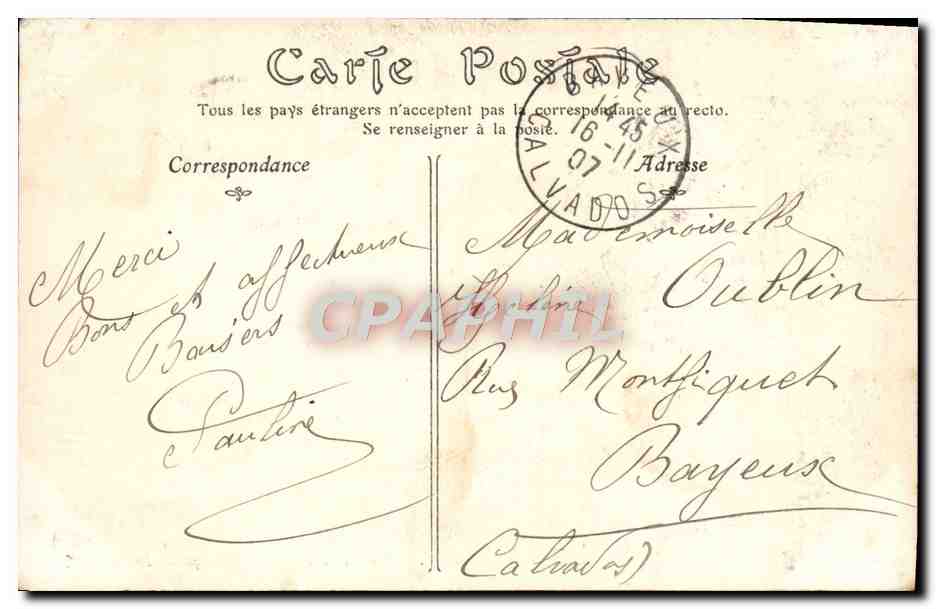 Carte Postale
Tous les pays étrangers n'acceptent pas la correspondance au recto.
Se renseigner à la poste.
Correspondance
Adresse
BAYEUX
14 45
16 -11
07
CALVADOS
Merci
Bons et affectueux
Baisers
Pauline
Mademoiselle
Oublin
Rue Montfiquet
Bayeux
Calvados)
CPAPHIL